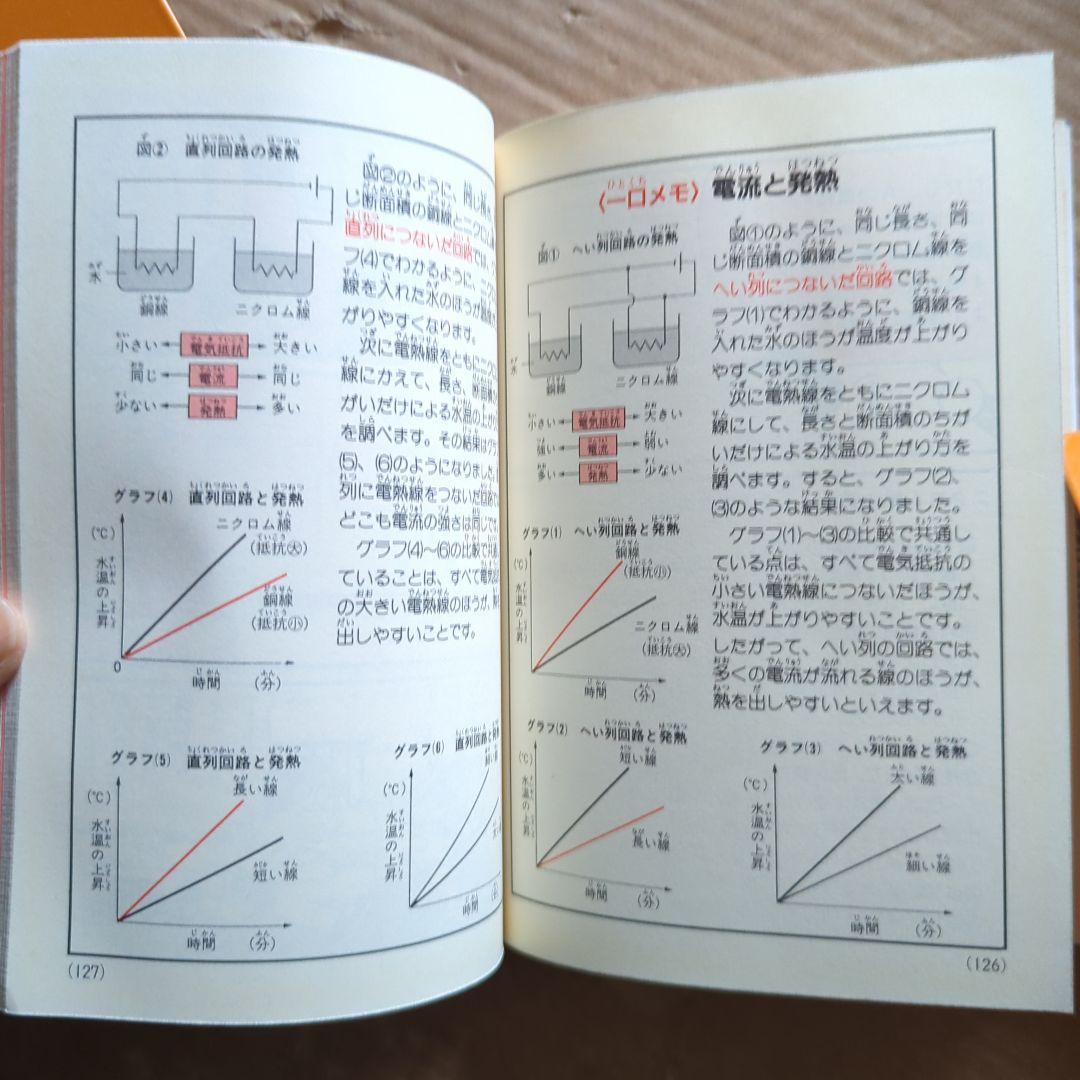 〈一口メモ〉 電流と発熱
図①のように、同じ長さ、同
じ断面積の銅線とニクロム線を
へい列につないだ回路では、グ
ラフ(1)でわかるように、銅線を
入れた水のほうが温度が上がり
やすくなります。
次に電熱線をともにニクロム
線にして、長さと断面積のちが
いだけによる水温の上がり方を
調べます。すると、グラフ(2)、
(3)のような結果になりました。
グラフ(1)〜(3)の比較で共通し
ている点は、すべて電気抵抗の
小さい電熱線につないだほうが、
水温が上がりやすいことです。
したがって、へい列の回路では、
多くの電流が流れる線のほうが、
熱を出しやすいといえます。
図① へい列回路の発熱
水
銅線
ニクロム線
小さい 電気抵抗 大きい
強い 電流 弱い
多い 発熱 少ない
グラフ(1) へい列回路と発熱
(℃)
水温の上昇
銅線
(抵抗小)
ニクロム線
(抵抗大)
時間 (分)
グラフ(2) へい列回路と発熱
(℃)
水温の上昇
短い線
長い線
時間 (分)
グラフ(3) へい列回路と発熱
(℃)
水温の上昇
太い線
細い線
時間 (分)
(126)
図② 直列回路の発熱
水
銅線
ニクロム線
小さい 電気抵抗 大きい
同じ 電流 同じ
少ない 発熱 多い
図②のように、同じ長
じ断面積の銅線とニクロム
直列につないだ回路では、
フ(4)でわかるように、ニク
線を入れた水のほうが温度
がりやすくなります。
次に電熱線をともにニク
線にかえて、長さ、断面積
がいだけによる水温の上がり
を調べます。その結果はグラ
(5)、(6)のようになりました。
列に電熱線をつないだ回路で
どこも電流の強さは同じで
グラフ(4)〜(6)の比較で共
ていることは、すべて電気
の大きい電熱線のほうが、
出しやすいことです。
グラフ(4) 直列回路と発熱
(℃)
水温の上昇
ニクロム線
(抵抗大)
銅線
(抵抗小)
0
時間 (分)
グラフ(5) 直列回路と発熱
(℃)
水温の上昇
長い線
短い線
時間 (分)
グラフ(6) 直列回路と
(℃)
水温の上昇
時間
(127)